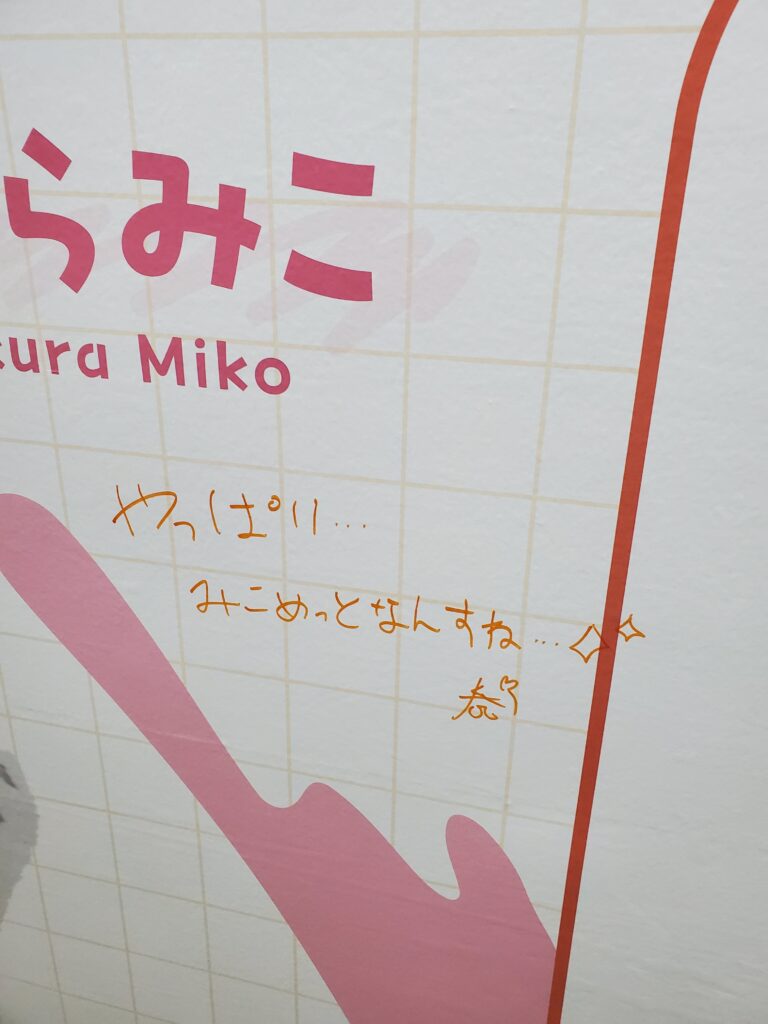 らみこ
kura Miko
やっぱり…
みこめっとなんすね…
春